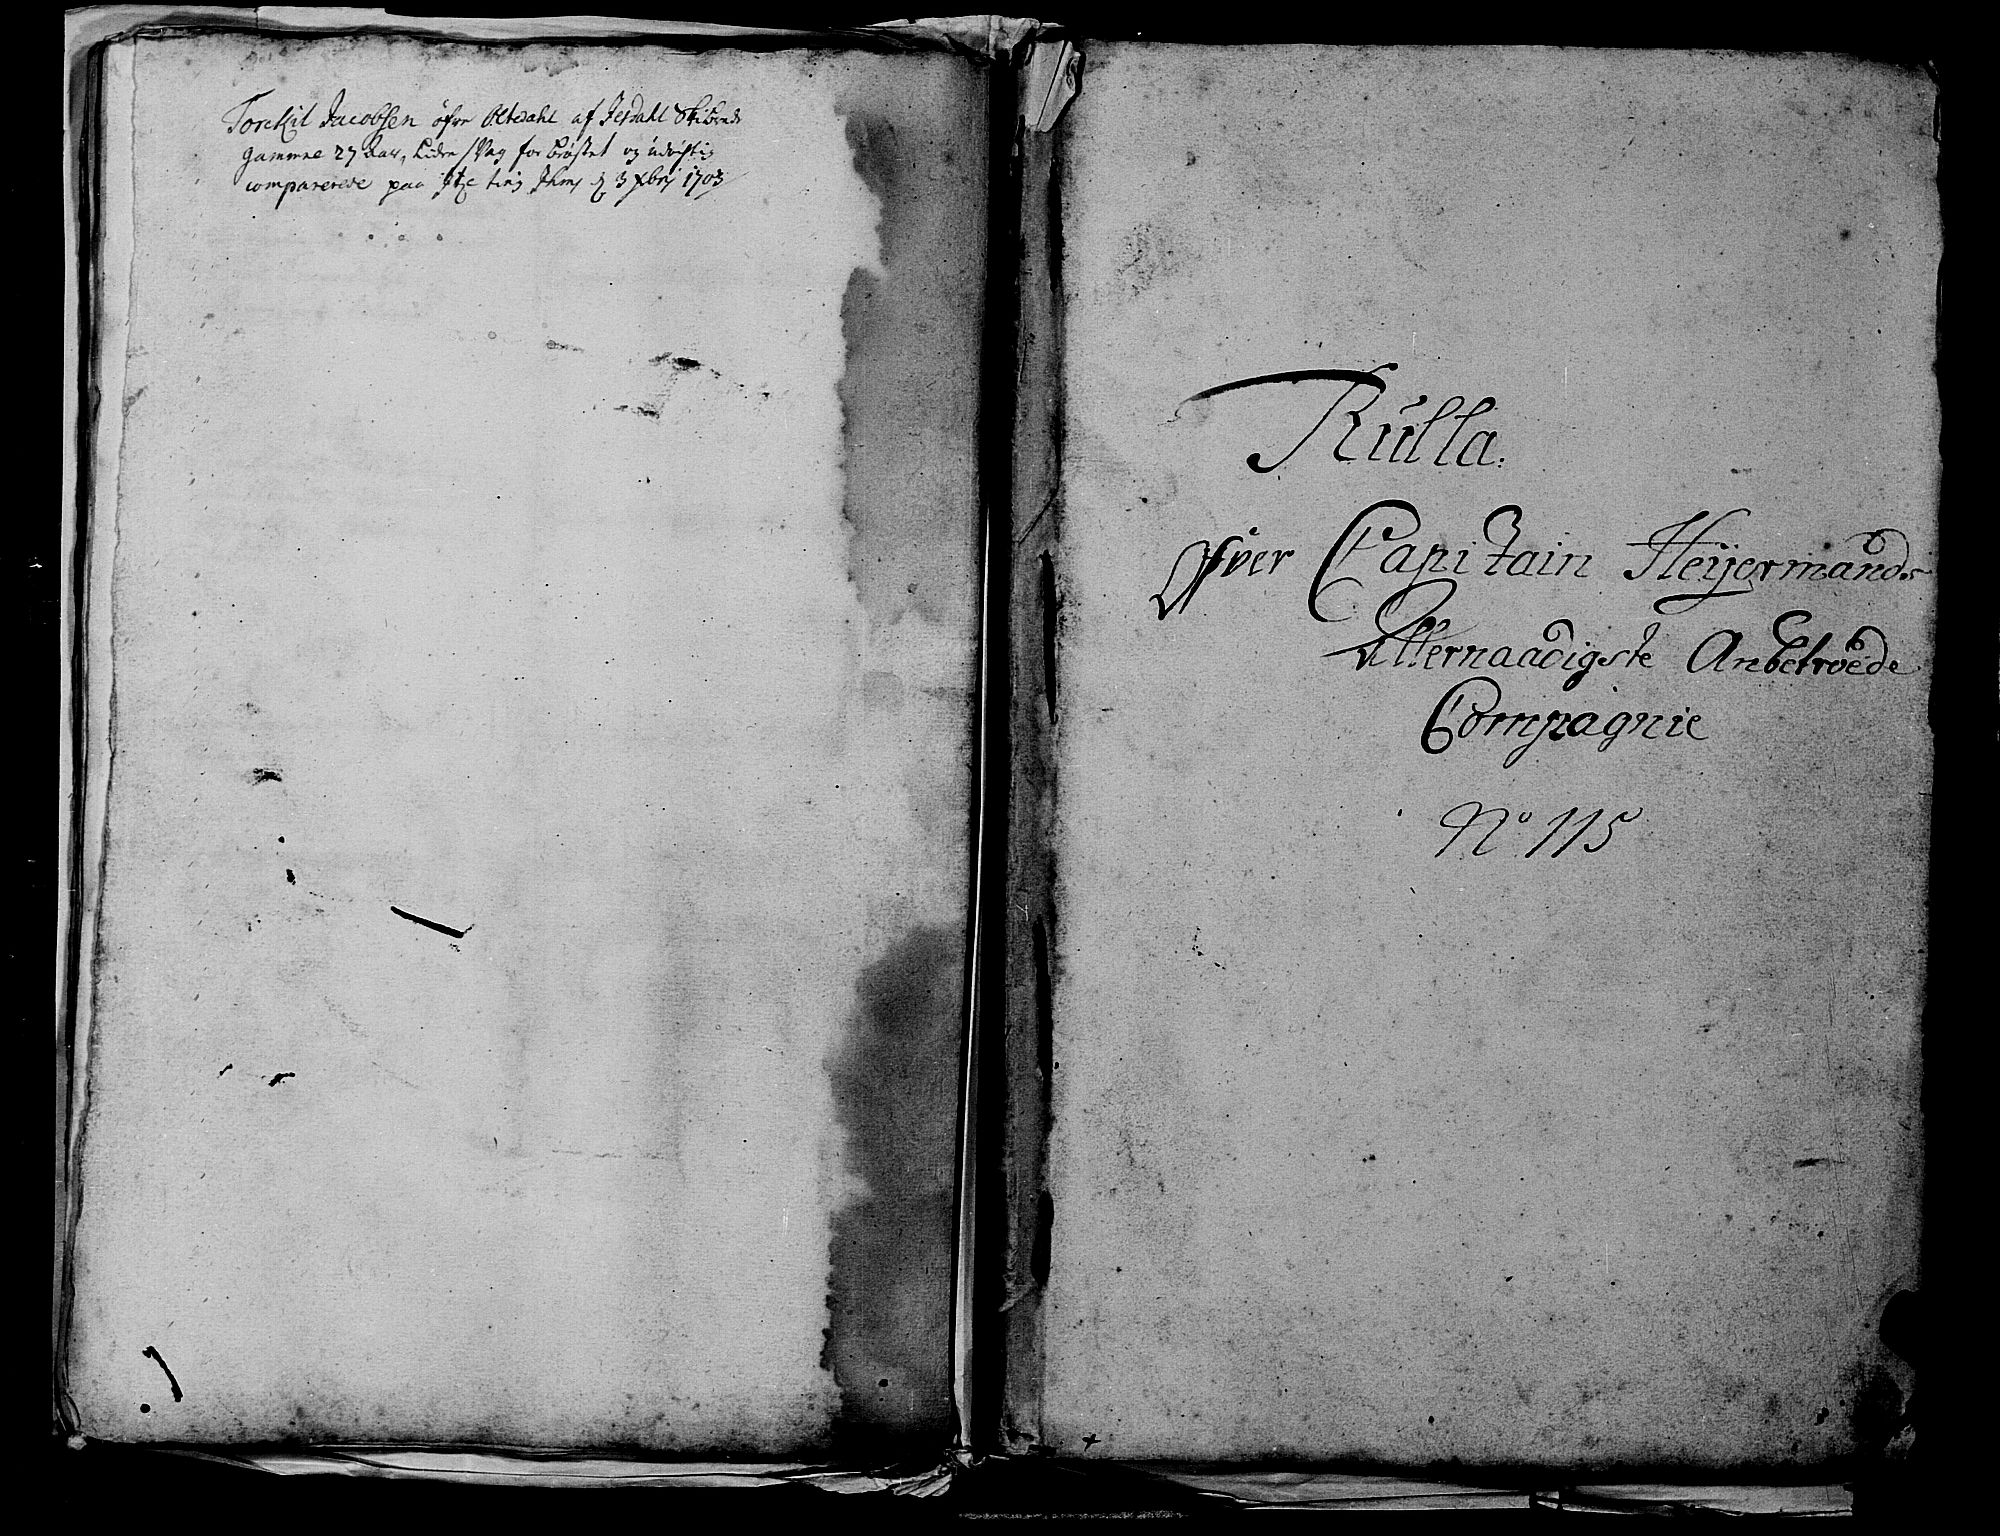 Torckil Jacobsen öfre Oltedahl af Jesdahl Skibrede
gammel 27 Aar, Liden svag for bröstet og udögtig
comparerede paa ting d 3 xbrj 1703
Rulla.
Ofver Capitain Heyermands
Allernaadigste Anbetroede
Compagnie
No 115